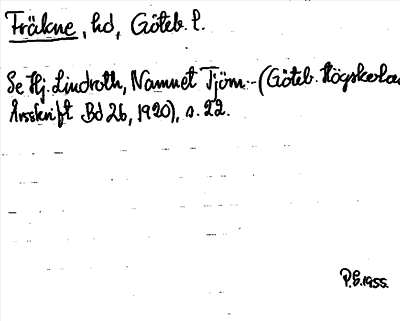 Fräkne, hd, Göteb. l.
Se Hj. Lindroth, Namnet Tjörn - (Göteb. Högskolas
Årsskrift Bd 26, 1920), s. 22.
P.G. 1955.